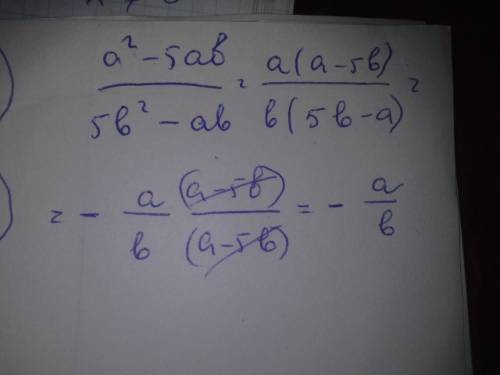 (a² - 5ab)/(5b² - ab) = (a(a - 5b))/(b(5b - a)) =
= - (a/b) ((a - 5b)/(a - 5b)) = - a/b